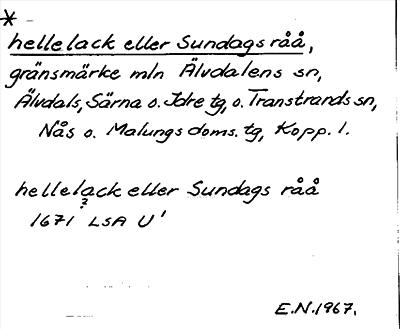 *
hellelack eller Sundags råå,
gränsmärke mln Älvdalens sn,
Älvdals, Särna o. Idre tg, o. Transtrands sn,
Nås o. Malungs doms. tg, Kopp. l.
hellelack eller Sundags råå
?
1671 LSA U'
E.N. 1967.